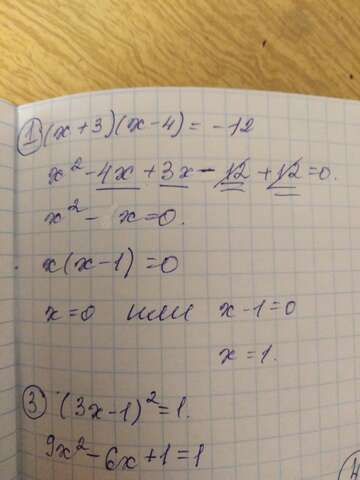 1 (x+3)(x-4)=-12
x²-4x+3x-12+12=0.
x²-x=0.
x(x-1)=0
x=0 или x-1=0
x=1.
3 (3x-1)²=1.
9x²-6x+1=1